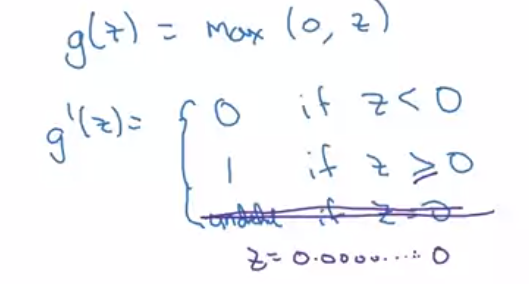 g(z) = max (0, z)
g'(z) = { 0 if z < 0
1 if z ⩾ 0
if z = 0
z = 0.0000.....0